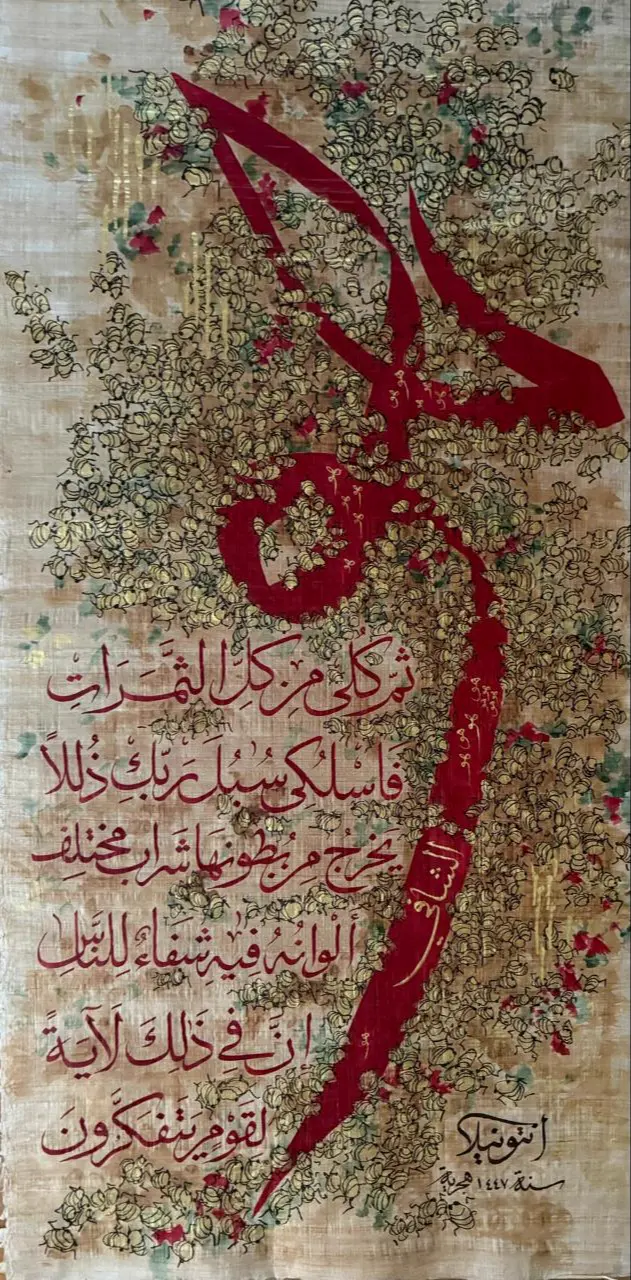 هو
ثم كُلي مِن كلِّ الثَّمَرَاتِ
فَاسْلُكِي سُبُلَ رَبِّكِ ذُلُلاً
يَخْرُجُ مِن بُطُونِهَا شَرَابٌ مختلِفٌ
ألْوَانُهُ فِيهِ شِفَاءٌ لِلنَّاسِ
إنَّ فِي ذَلِكَ لَآيَةً
لِقَوْمٍ يَتَفَكَّرُونَ
الشافي
أنتونيلا
سنة ١٤٤٧ هجرية